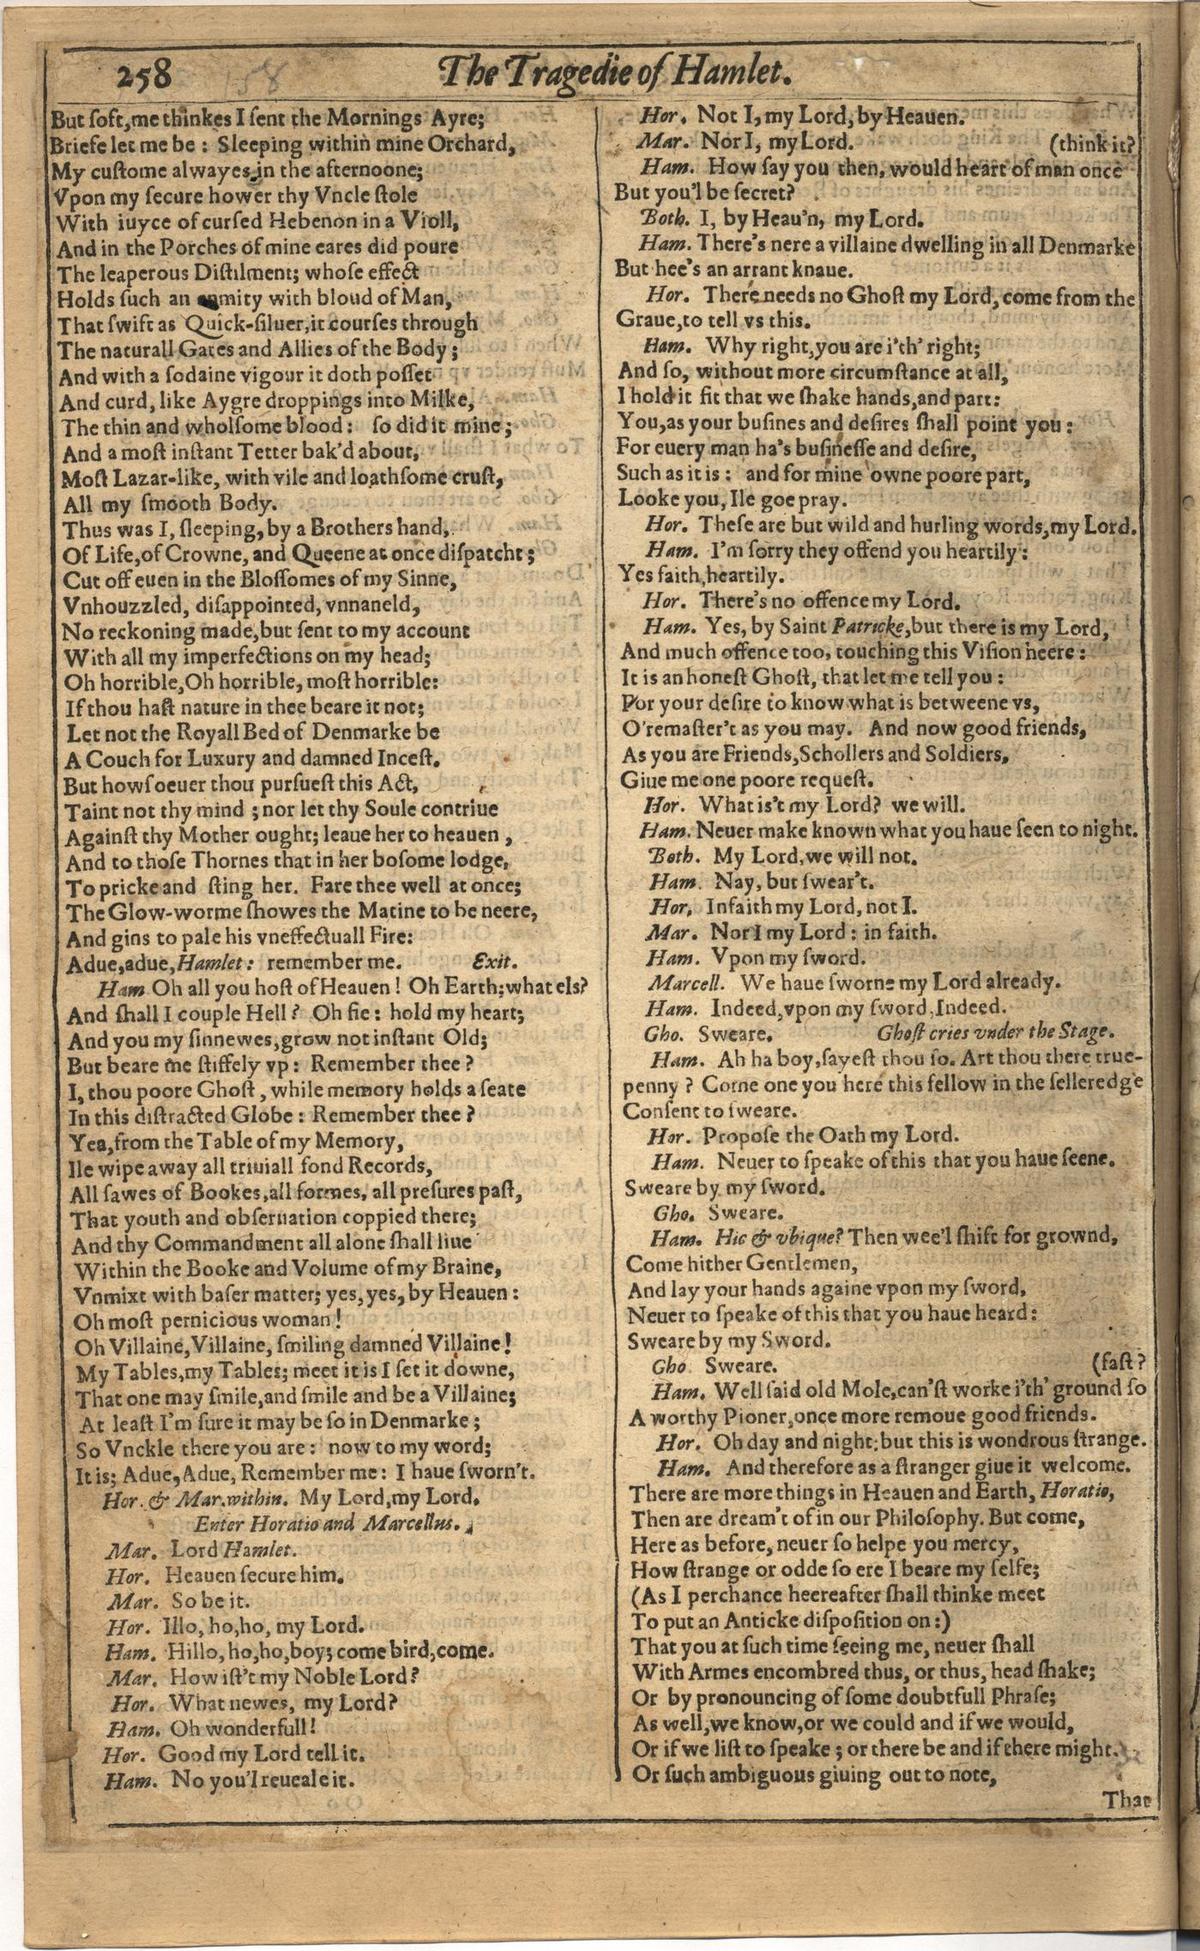 258
158
The Tragedie of Hamlet.
But ſoft, me thinkes I ſent the Mornings Ayre;
Briefe let me be : Sleeping within mine Orchard,
My cuſtome alwayes in the afternoone;
Vpon my ſecure hower thy Vncle ſtole
With iuyce of curſed Hebenon in a Violl,
And in the Porches of mine eares did poure
The leaperous Diſtilment; whoſe effect
Holds ſuch an enmity with bloud of Man,
That ſwift as Quick-ſiluer, it courſes through
The naturall Gates and Allies of the Body;
And with a ſodaine vigour it doth poſſet
And curd, like Aygre droppings into Milke,
The thin and wholſome blood : ſo did it mine;
And a moſt inſtant Tetter bak'd about,
Moſt Lazar-like, with vile and loathſome cruſt,
All my ſmooth Body.
Thus was I, ſleeping, by a Brothers hand,
Of Life, of Crowne, and Queene at once diſpatcht;
Cut off euen in the Bloſſomes of my Sinne,
Vnhouzzled, diſappointed, vnnaneld,
No reckoning made, but ſent to my account
With all my imperfections on my head;
Oh horrible, Oh horrible, moſt horrible:
If thou haſt nature in thee beare it not;
Let not the Royall Bed of Denmarke be
A Couch for Luxury and damned Inceſt.
But howſoeuer thou purſueſt this Act,
Taint not thy mind ; nor let thy Soule contriue
Againſt thy Mother ought; leaue her to heauen ,
And to thoſe Thornes that in her boſome lodge,
To pricke and ſting her. Fare thee well at once;
The Glow-worme ſhowes the Matine to be neere,
And gins to pale his vneffectuall Fire:
Adue, adue, Hamlet : remember me. Exit.
Ham. Oh all you hoſt of Heauen! Oh Earth; what els?
And ſhall I couple Hell? Oh fie : hold my heart;
And you my ſinnewes, grow not inſtant Old;
But beare me ſtiffely vp : Remember thee?
I, thou poore Ghoſt , while memory holds a ſeate
In this diſtracted Globe : Remember thee?
Yea, from the Table of my Memory,
Ile wipe away all triuiall fond Records,
All ſawes of Bookes, all formes, all preſures paſt,
That youth and obſeruation coppied there;
And thy Commandment all alone ſhall liue
Within the Booke and Volume of my Braine,
Vnmixt with baſer matter; yes, yes, by Heauen :
Oh moſt pernicious woman!
Oh Villaine, Villaine, ſmiling damned Villaine!
My Tables, my Tables; meet it is I ſet it downe,
That one may ſmile, and ſmile and be a Villaine;
At leaſt I'm ſure it may be ſo in Denmarke;
So Vnckle there you are : now to my word;
It is; Adue, Adue, Remember me : I haue ſworn't.
Hor. & Mar. within. My Lord, my Lord.
Enter Horatio and Marcellus.
Mar. Lord Hamlet.
Hor. Heauen ſecure him.
Mar. So be it.
Hor. Illo, ho, ho, my Lord.
Ham. Hillo, ho, ho, boy; come bird, come.
Mar. How iſt't my Noble Lord?
Hor. What newes, my Lord?
Ham. Oh wonderfull!
Hor. Good my Lord tell it.
Ham. No you'l reueale it.
Hor. Not I, my Lord, by Heauen.
Mar. Nor I, my Lord. (think it?
Ham. How ſay you then, would heart of man once
But you'l be ſecret?
Both. I, by Heau'n, my Lord.
Ham. There's nere a villaine dwelling in all Denmarke
But hee's an arrant knaue.
Hor. There needs no Ghoſt my Lord, come from the
Graue, to tell vs this.
Ham. Why right, you are i'th' right;
And ſo, without more circumſtance at all,
I hold it fit that we ſhake hands, and part:
You, as your buſines and deſires ſhall point you :
For euery man ha's buſineſſe and deſire,
Such as it is : and for mine owne poore part,
Looke you, Ile goe pray.
Hor. Theſe are but wild and hurling words, my Lord.
Ham. I'm ſorry they offend you heartily :
Yes faith, heartily.
Hor. There's no offence my Lord.
Ham. Yes, by Saint Patricke, but there is my Lord,
And much offence too, touching this Viſion heere :
It is an honeſt Ghoſt, that let me tell you :
For your deſire to know what is betweene vs,
O'remaſter't as you may. And now good friends,
As you are Friends, Schollers and Soldiers,
Giue me one poore requeſt.
Hor. What is't my Lord? we will.
Ham. Neuer make known what you haue ſeen to night.
Both. My Lord, we will not.
Ham. Nay, but ſwear't.
Hor. Infaith my Lord, not I.
Mar. Nor I my Lord : in faith.
Ham. Vpon my ſword.
Marcell. We haue ſworne my Lord already.
Ham. Indeed, vpon my ſword, Indeed.
Gho. Sweare. Ghoſt cries vnder the Stage.
Ham. Ah ha boy, ſayeſt thou ſo. Art thou there true-
penny ? Come one you here this fellow in the ſelleredge
Conſent to ſweare.
Hor. Propoſe the Oath my Lord.
Ham. Neuer to ſpeake of this that you haue ſeene.
Sweare by my ſword.
Gho. Sweare.
Ham. Hic & vbique? Then wee'l ſhift for grownd,
Come hither Gentlemen,
And lay your hands againe vpon my ſword,
Neuer to ſpeake of this that you haue heard:
Sweare by my Sword.
Gho. Sweare. (faſt?
Ham. Well ſaid old Mole, can'ſt worke i'th' ground ſo
A worthy Pioner, once more remoue good friends.
Hor. Oh day and night: but this is wondrous ſtrange.
Ham. And therefore as a ſtranger giue it welcome.
There are more things in Heauen and Earth, Horatio,
Then are dream't of in our Philoſophy. But come,
Here as before, neuer ſo helpe you mercy,
How ſtrange or odde ſo ere I beare my ſelfe;
(As I perchance heereafter ſhall thinke meet
To put an Anticke diſpoſition on:)
That you at ſuch time ſeeing me, neuer ſhall
With Armes encombred thus, or thus, head ſhake;
Or by pronouncing of ſome doubtfull Phraſe;
As well, we know, or we could and if we would,
Or if we liſt to ſpeake ; or there be and if there might,
Or ſuch ambiguous giuing out to note,
That